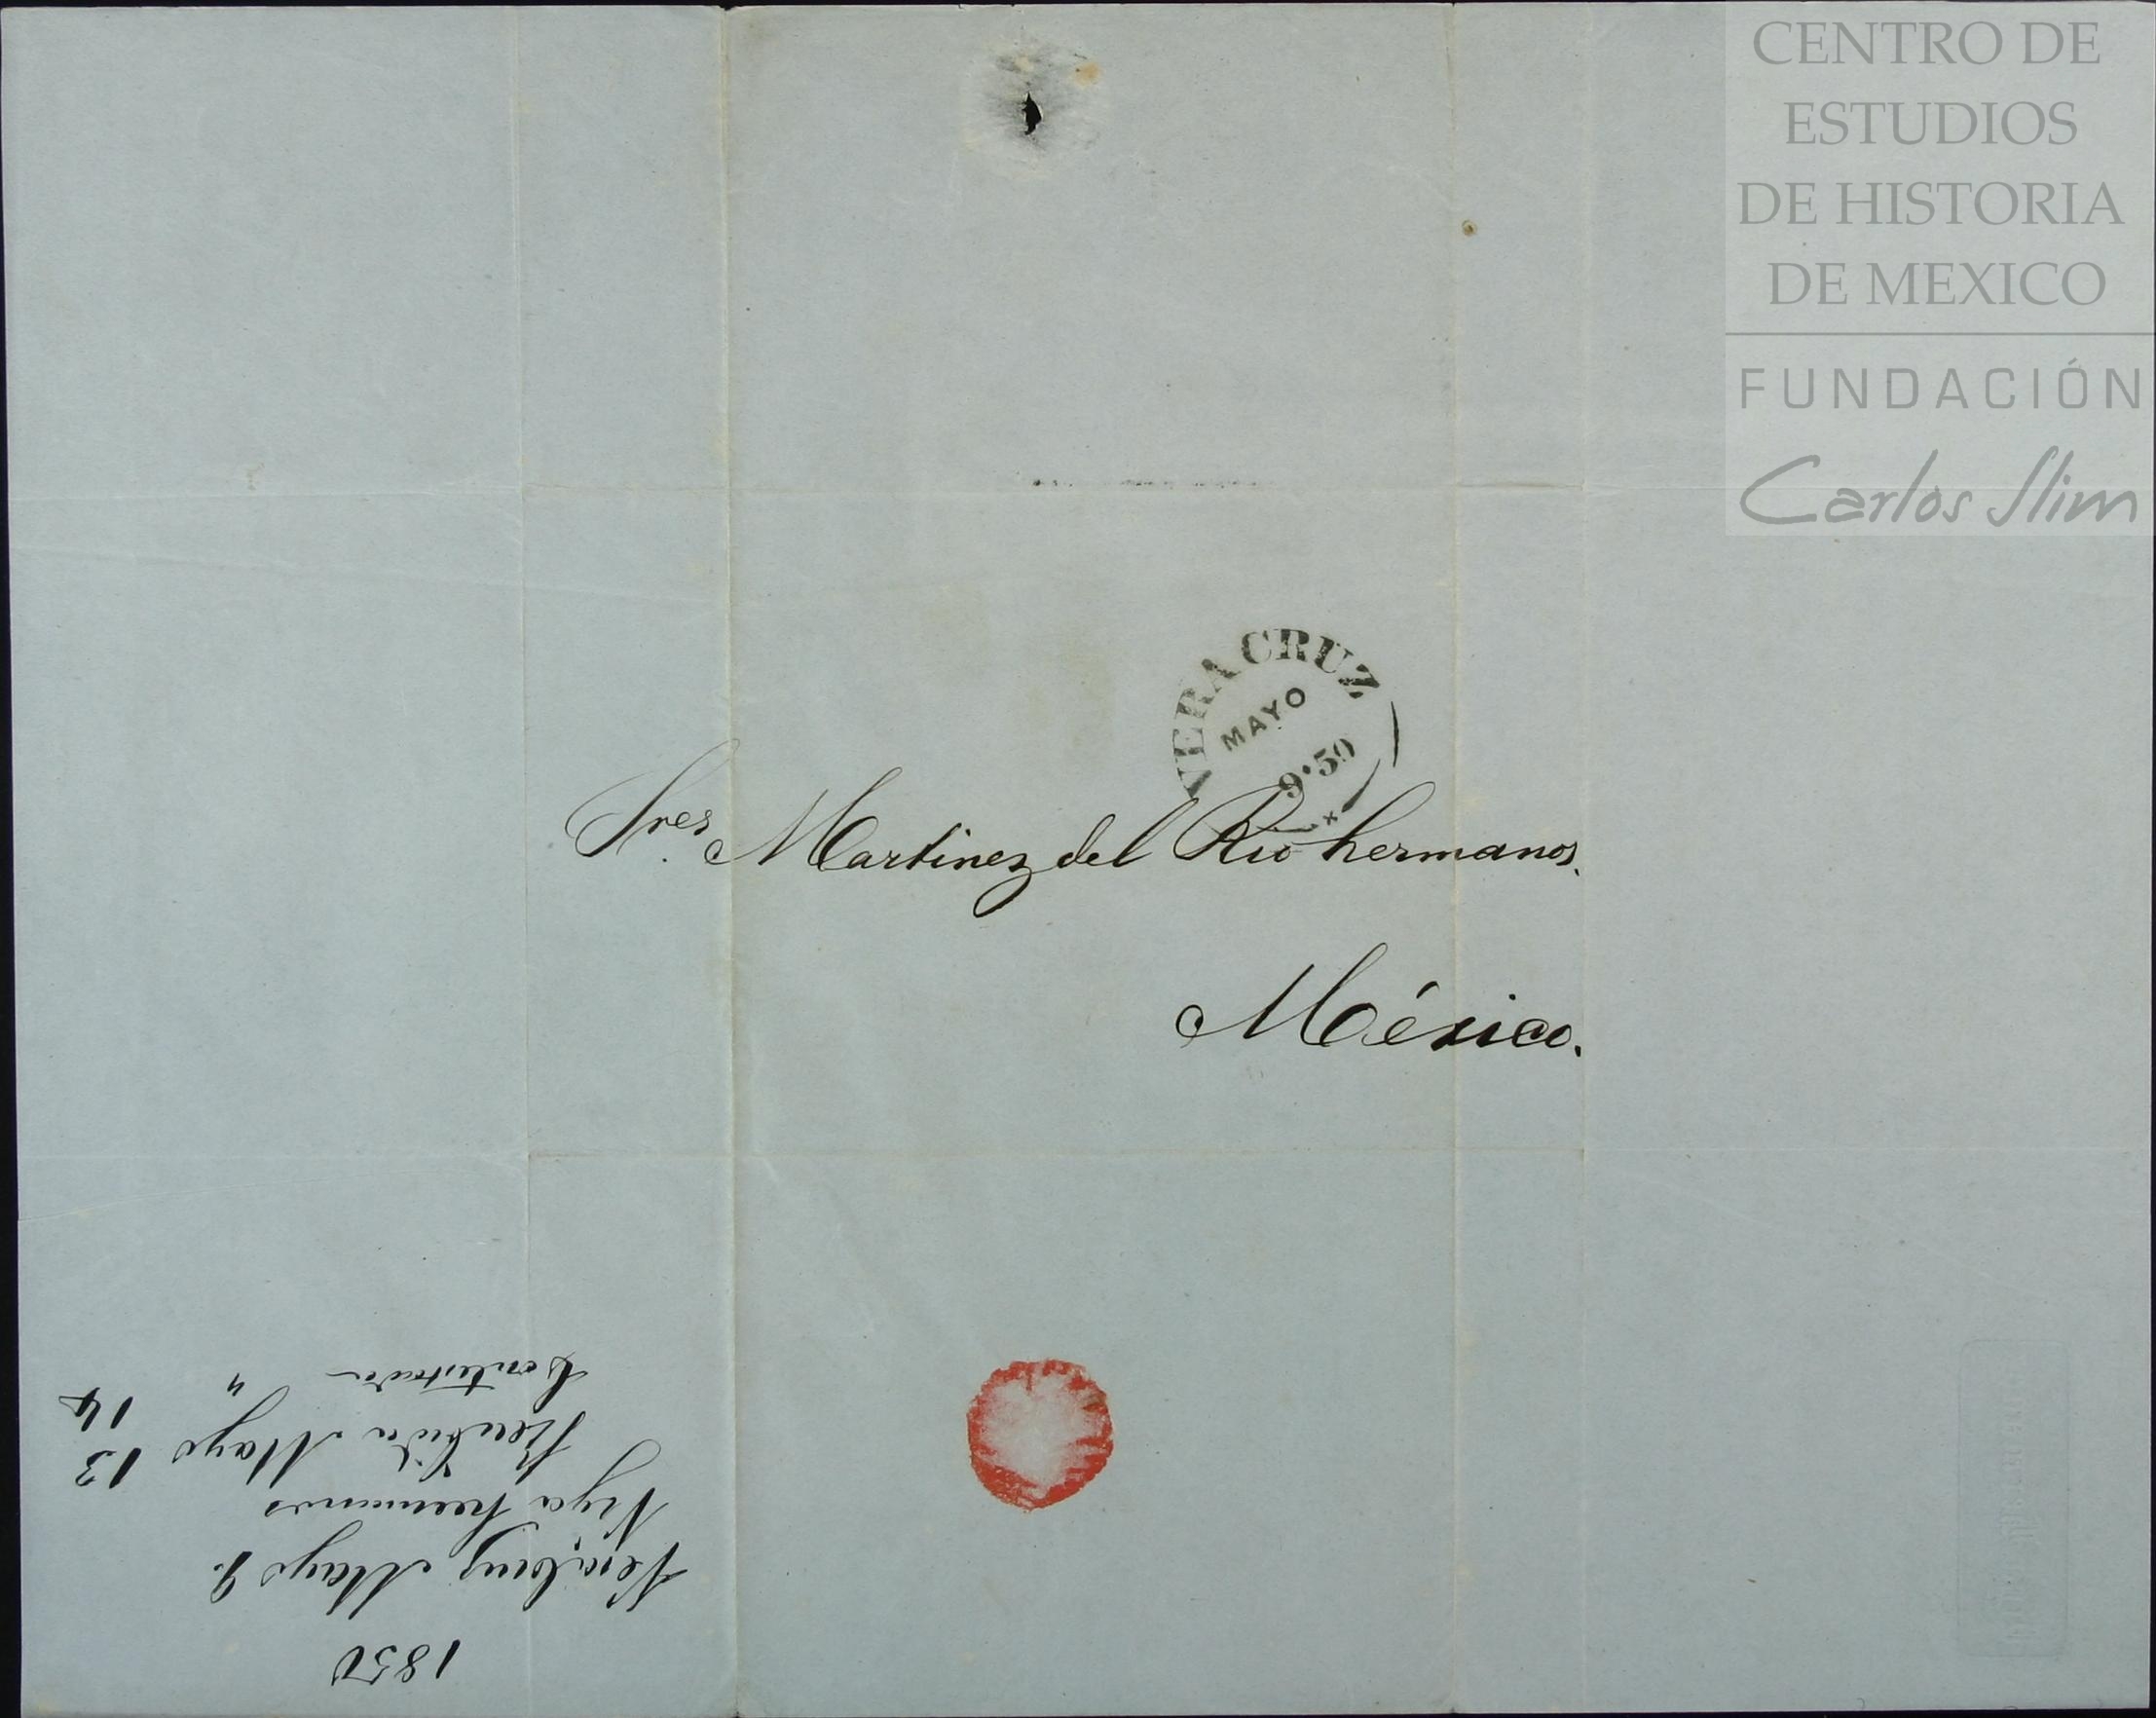 CENTRO DE
ESTUDIOS
DE HISTORIA
DE MEXICO
FUNDACIÓN
Carlos Slim
VERA CRUZ
MAYO
9·50
Sres Martinez del Rio hermanos.
México.
1850
VeraCruz Mayo 9.
Viya hermanos
Recibida Mayo 13
Contestada " 14